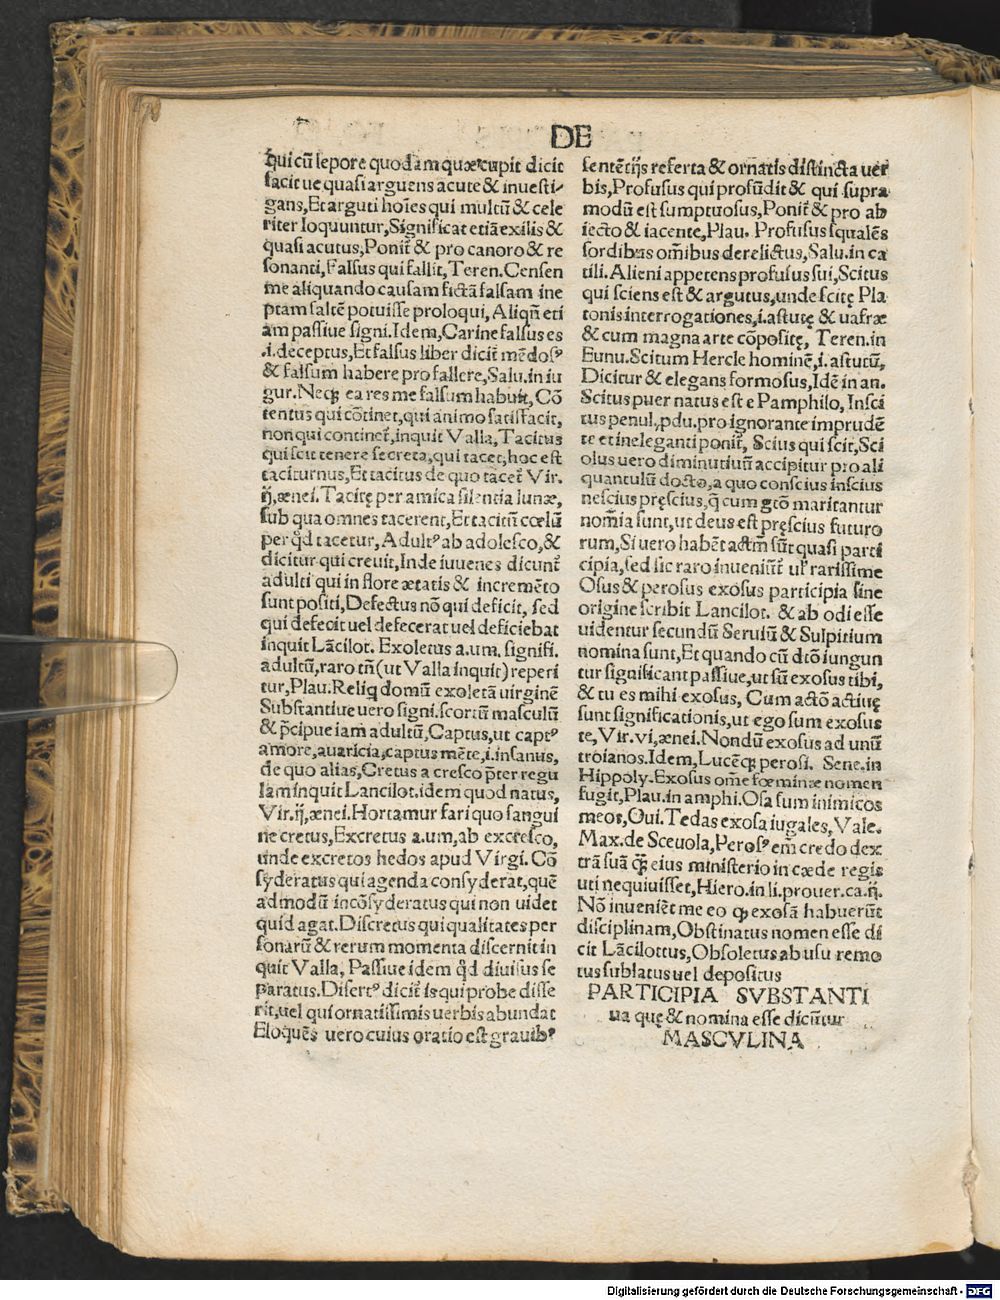 DE
qui cũ lepore quodam quæ cupit dicit
facit ue quasi arguens acute & inuesti-
gans, Et arguti hoĩes qui multũ & cele
riter loquuntur, Significat etiã exilis &
quasi acutus, Ponit̃ & pro canoro & re
sonanti, Falsus qui fallit, Teren. Censen
me aliquando causam fictã falsam ine
ptam saltẽ potuisse proloqui, Aliqñ eti
am passiue signi. Idem, Carine falsus es
.i. deceptus, Et falsus liber dicit̃ mẽdosꝰ
& falsum habere pro fallere, Salu. in iu
gur. Neqꝫ ea res me falsum habuit, Cõ
tentus qui cõtinet, qui animo satisfacit,
non qui continet̃, inquit Valla, Tacitus
qui scit tenere secreta, qui tacet, hoc est
taciturnus, Et tacitus de quo tacet̃ Vir.
ij, ænei. Tacitę per amica silentia lunæ,
sub qua omnes tacerent, Et tacitũ cœlũ
per qd̃ tacetur, Adultꝰ ab adolesco, &
dicitur qui creuit, Inde iuuenes dicunt̃
adulti qui in flore ætatis & incremẽto
sunt positi, Defectus nõ qui deficit, sed
qui defecit uel defecerat uel deficiebat
inquit Lãcilot. Exoletus a.um. signifi.
adultũ, raro tñ (ut Valla inquit) reperi
tur, Plau. Reliq̃ domũ exoletã uirginẽ
Substantiue uero signi. scortũ masculũ
& p̃cipue iam adultũ, Captus, ut captꝰ
amore, auaricia, captus mẽte, i. insanus,
de quo alias, Cretus a cresco p̃ter regu
lam inquit Lancilot. idem quod natus,
Vir. ij, ænei. Hortamur fari quo sangui
ne cretus, Excretus a.um, ab excresco,
unde excretos hedos apud Virgi. Cõ
syderatus qui agenda consyderat, quẽ
admodũ incõsyderatus qui non uidet
quid agat. Discretus qui qualitates per
sonarũ & rerum momenta discernit in
quit Valla, Passiue idem qd̃ diuisus se
paratus. Disertꝰ dicit̃ is qui probe disse
rit, uel qui ornatissimis uerbis abundat
Eloquẽs uero cuius oratio est grauibꝰ
sentẽtijs referta & ornatis distincta uer
bis, Profusus qui profũdit & qui supra
modũ est sumptuosus, Ponit̃ & pro ab
iecto & iacente, Plau. Profusus squalẽs
sordibus om̃ibus derelictus, Salu. in ca
tili. Alieni appetens profusus sui, Scitus
qui sciens est & argutus, unde scitę Pla
tonis interrogationes, i. astutę & uafræ
& cum magna arte cõpositę, Teren. in
Eunu. Scitum Hercle hominẽ, i. astutũ,
Dicitur & elegans formosus, Idẽ in an.
Scitus puer natus est e Pamphilo, Insci
tus penul, pdu. pro ignorante imprudẽ
te et ineleganti ponit̃, Scius qui scit, Sci
olus uero diminutiuũ accipitur pro ali
quantulũ docto, a quo conscius inscius
nescius pręscius, q̃ cum gtõ maritantur
nom̃ia sunt, ut deus est pręscius futuro
rum, Si uero habẽt actm̃ sũt quasi parti
cipia, sed sic raro inueniũt̃ ul' rarissime
Osus & perosus exosus participia sine
origine scribit Lancilot. & ab odi esse
uidentur secundũ Seruiũ & Sulpitium
nomina sunt, Et quando cũ dtõ iungun
tur significant passiue, ut sũ exosus tibi,
& tu es mihi exosus, Cum actõ actiuę
sunt significationis, ut ego sum exosus
te, Vir. vi, ænei. Nondũ exosus ad unũ
troianos. Idem, Lucẽqꝫ perosi. Sene. in
Hippoly. Exosus om̃e fœminæ nomen
fugit, Plau. in amphi. Osa sum inimicos
meos, Oui. Tedas exosa iugales, Vale.
Max. de Sceuola, Perosꝰ em̃ credo dex
trã suã qꝫ̃ eius ministerio in cæde regis
uti nequiuisset, Hiero. in li. prouer. ca. ij.
Nõ inueniẽt me eo ꝙ exosã habuerũt
disciplinam, Obstinatus nomen esse di
cit Lãcilottus, Obsoletus ab usu remo
tus sublatus uel depositus
PARTICIPIA SVBSTANTI
ua quę & nomina esse dicũtur
MASCVLINA
Digitalisierung gefördert durch die Deutsche Forschungsgemeinschaft - DFG